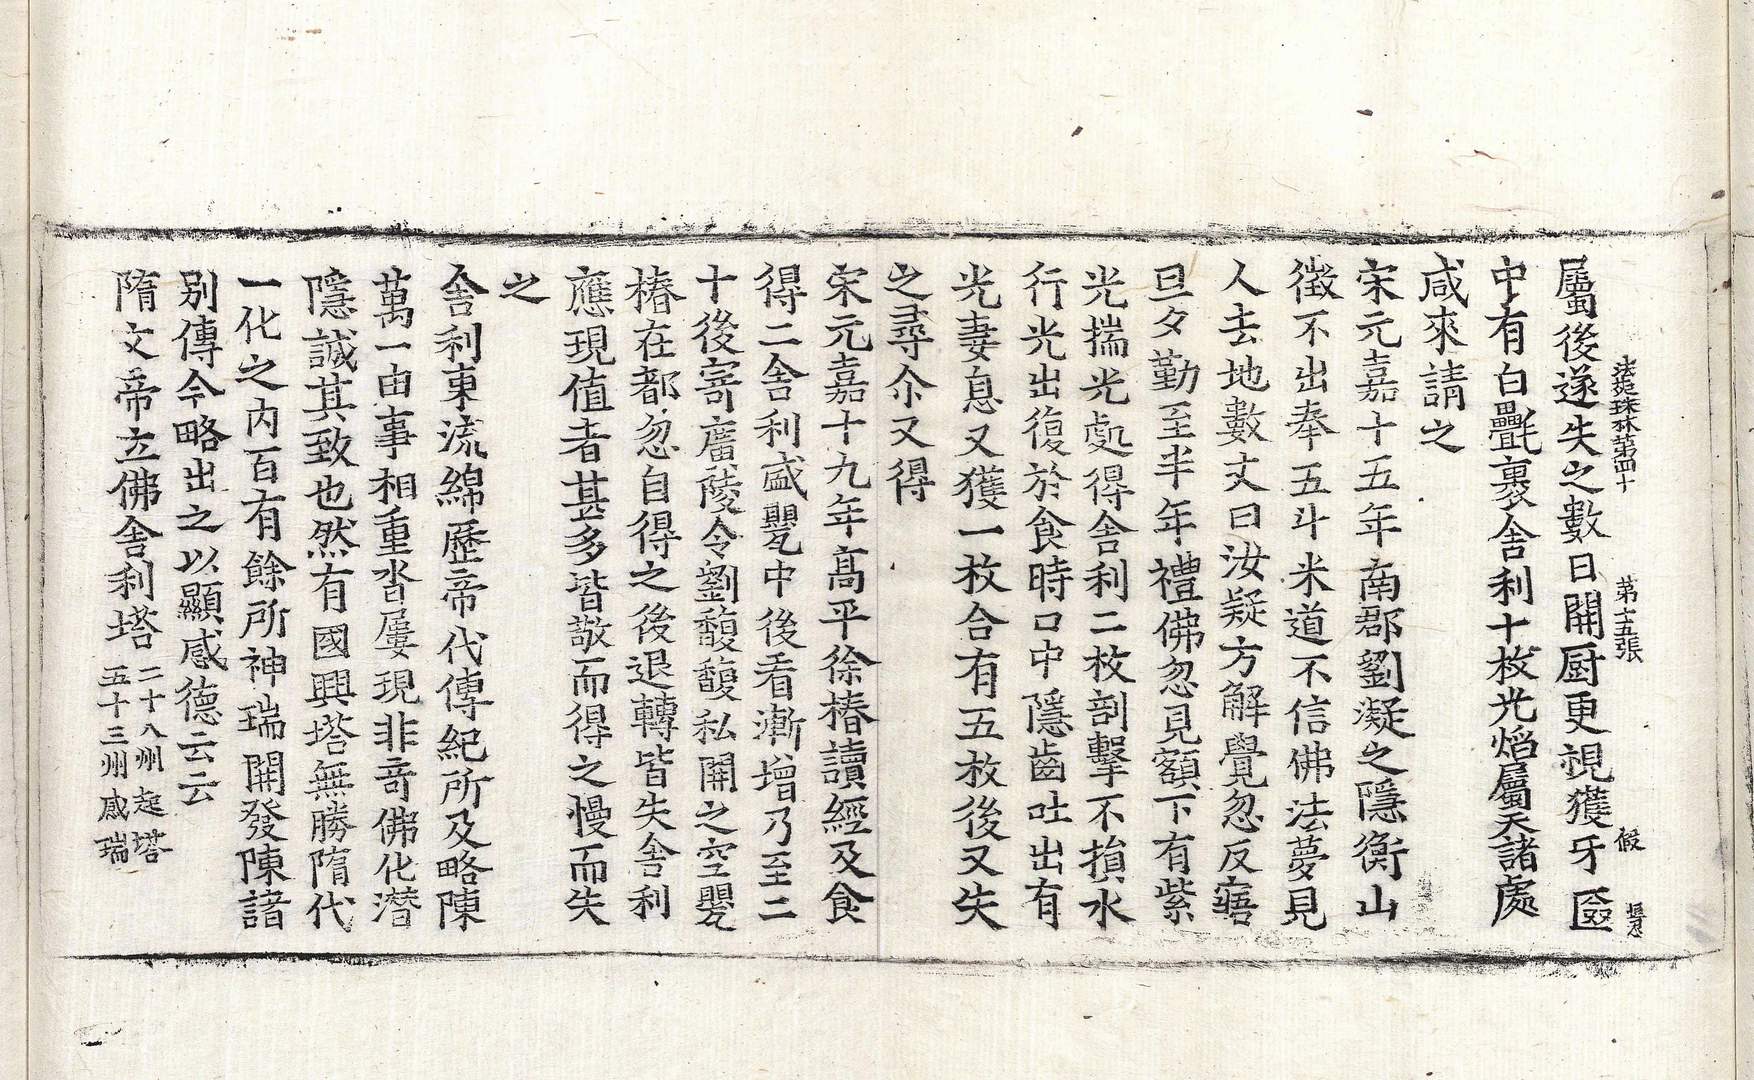 法苑珠林第四十 第十五張 假
屬後遂失之數日開厨更視獲牙匳
中有白㲲裹舍利十枚光焰屬天諸處
咸來請之
宋元嘉十五年南郡劉凝之隱衡山
徵不出奉五斗米道不信佛法夢見
人去地數丈曰汝疑方解覺忽反寤
旦夕勤至半年禮佛忽見額下有紫
光揣光處得舍利二枚剖擊不損水
行光出復於食時口中隱齒吐出有
光妻息又獲一枚合有五枚後又失
之尋尒又得
宋元嘉十九年高平徐椿讀經及食
得二舍利盛甖中後看漸增乃至二
十後寄廣陵令劉馥馥私開之空甖
椿在都忽自得之後退轉皆失舍利
應現值者甚多皆敬而得之慢而失
之
舍利東流綿歷帝代傳紀所及略陳
萬一由事相重沓屢現非奇佛化潛
隱誠其致也然有國興塔無勝隋代
一化之内百有餘所神瑞開發陳諸
別傳今略出之以顯感德云云
隋文帝立佛舍利塔 二十八州起塔
五十三州感瑞